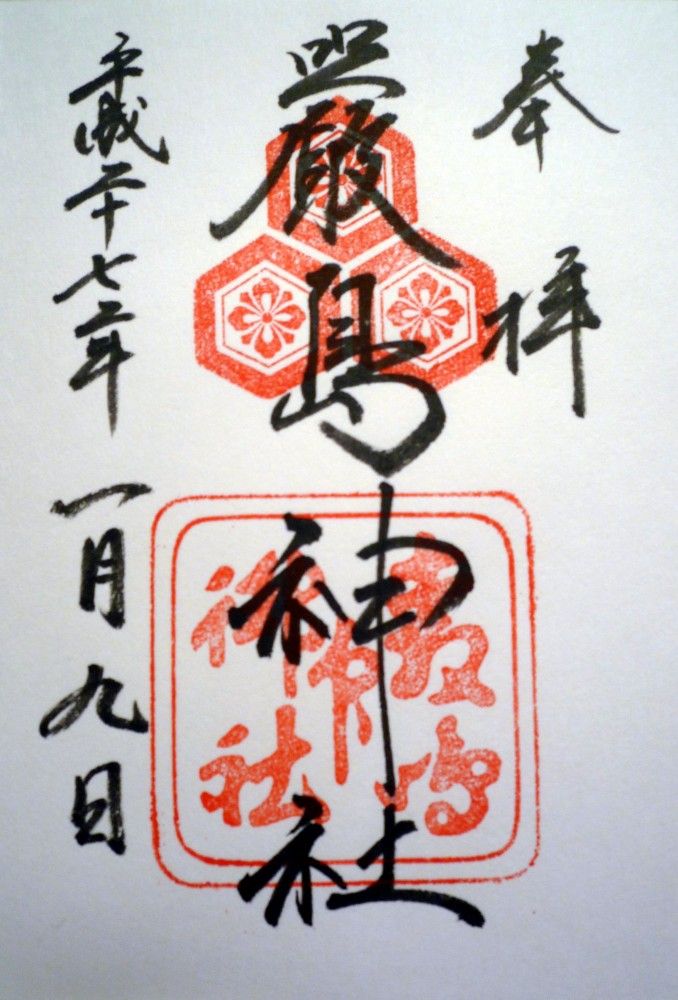 奉拝
嚴島神社
平成二十七年一月九日
嚴嶋
神社